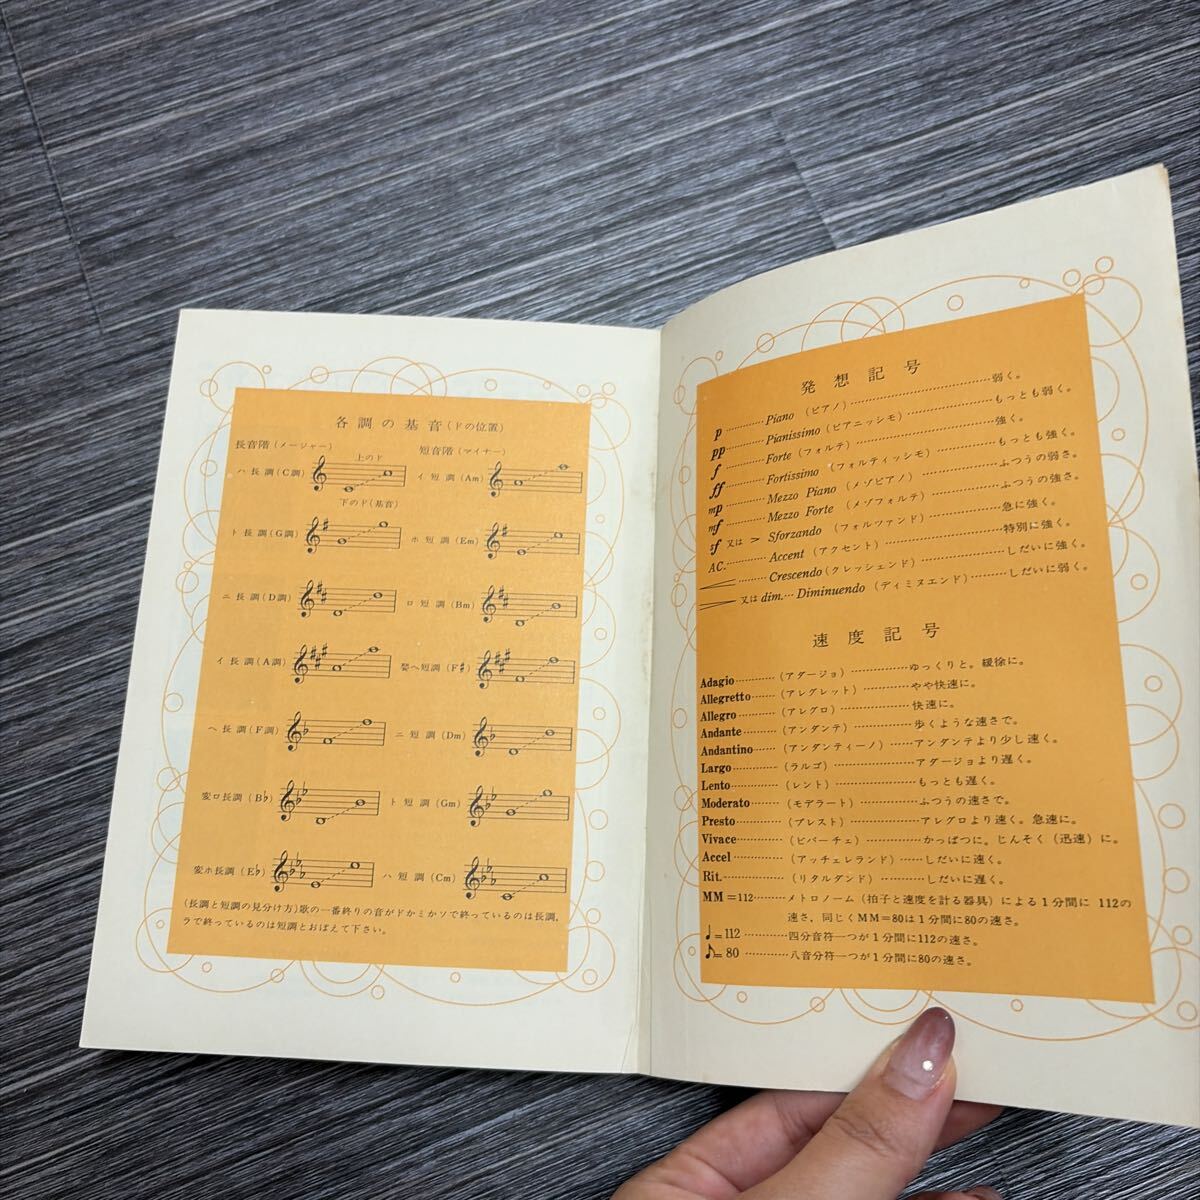 各調の基音(ドの位置)
長音階(メージャー)
短音階(マイナー)
上のド
ハ長調(C調)
イ短調(Am)
下のド(基音)
ト長調(G調)
ホ短調(Em)
ニ長調(D調)
ロ短調(Bm)
イ長調(A調)
嬰ヘ短調(F#)
ヘ長調(F調)
ニ短調(Dm)
変ロ長調(B♭)
ト短調(Gm)
変ホ長調(E♭)
ハ短調(Cm)
(長調と短調の見分け方)歌の一番終りの音がドかミかソで終っているのは長調。
ラで終っているのは短調とおぼえて下さい。
発想記号
p…………Piano(ピアノ)…………………………弱く。
pp…………Pianissimo(ピアニッシモ)………………もっとも弱く。
f…………Forte(フォルテ)…………………………強く。
ff…………Fortissimo(フォルティッシモ)…………もっとも強く。
mp…………Mezzo Piano(メゾピアノ)……………ふつうの弱さ。
mf…………Mezzo Forte(メゾフォルテ)…………ふつうの強さ。
sf 又は > Sforzando(フォルツァンド)……………急に強く。
AC.…………Accent(アクセント)……………………特別に強く。
………Crescendo(クレッシェンド)……………しだいに強く。
又は dim.… Diminuendo(ディミヌエンド)………しだいに弱く。
速度記号
Adagio…………(アダージョ)……………ゆっくりと。緩徐に。
Allegretto………(アレグレット)…………やや快速に。
Allegro…………(アレグロ)………………快速に。
Andante…………(アンダンテ)……………歩くような速さで。
Andantino……(アンダンティーノ)……アンダンテより少し速く。
Largo……………(ラルゴ)…………………アダージョより遅く。
Lento……………(レント)…………………もっとも遅く。
Moderato………(モデラート)……………ふつうの速さで。
Presto…………(プレスト)………………アレグロより速く。急速に。
Vivace…………(ビバーチェ)……………かっぱつに。じんそく(迅速)に。
Accel……………(アッチェレランド)……しだいに速く。
Rit.………………(リタルダンド)…………しだいに遅く。
MM=112………メトロノーム(拍子と速度を計る器具)による1分間に 112の
速さ。同じくMM=80は1分間に80の速さ。
♩=112…………四分音符一つが1分間に112の速さ。
♪=80…………八音分符一つが1分間に80の速さ。